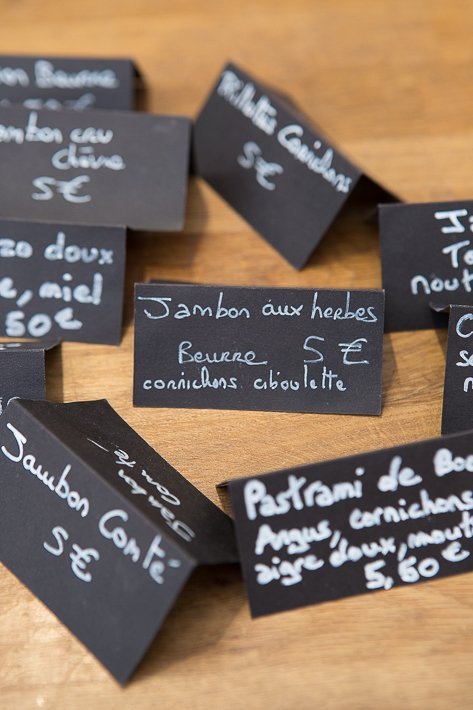 Beurre
Jambon cru
chèvre
5€
Rillettes Cornichons
5€
doux
miel
50€
Jambon aux herbes
Beurre 5€
cornichons ciboulette
Jambon Comté
5€
Jambon
Comté
Pastrami de
Angus, cornichons
aigre doux,
5,60€